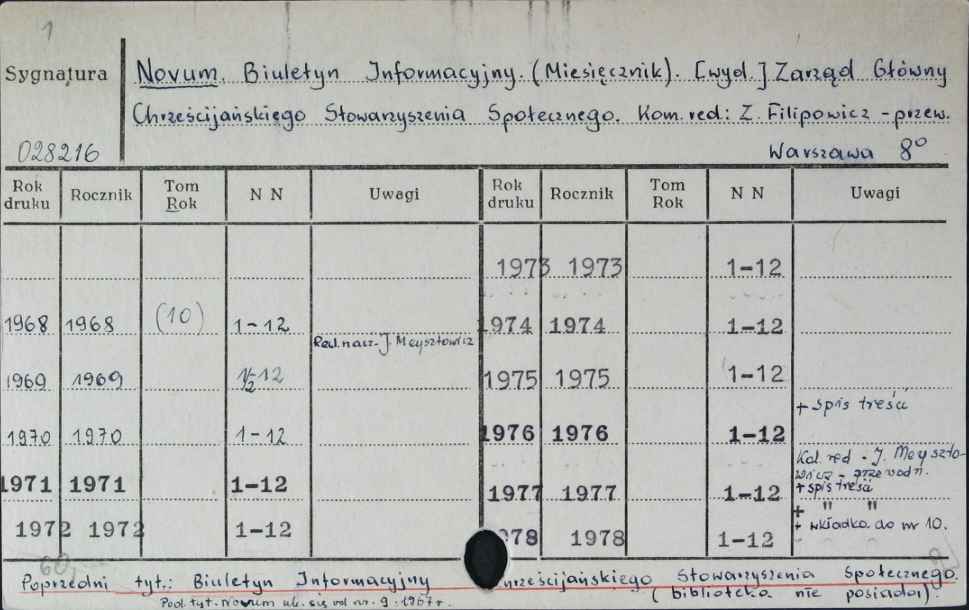 1
Sygnatura
Novum. Biuletyn Informacyjny. (Miesięcznik). [wyd.] Zarząd Główny
Chrześcijańskiego Stowarzyszenia Społecznego. Kom. red: Z. Filipowicz - przew.
028216
Warszawa 8°
Rok druku Rocznik Tom Rok N N Uwagi Rok druku Rocznik Tom Rok N N Uwagi
1973 1973 1-12
1968 1968 (10) 1-12 1974 1974 1-12
Red. nacz. J. Meysztowicz
1969 1969 1/2 12 1975 1975 1-12
+ spis treści
1970 1970 1-12 1976 1976 1-12
Kol. red. - J. Meyszto-
wicz - przewodn.
1971 1971 1-12 1977 1977 1-12 + spis treści
+ " "
1972 1972 1-12 1978 1978 1-12 + wkładka do nr 10.
Poprzedni tyt.: Biuletyn Informacyjny Chrześcijańskiego Stowarzyszenia Społecznego.
Pod tyt. Novum uk. się od nr. 9. 1967 r. (biblioteka nie posiada).